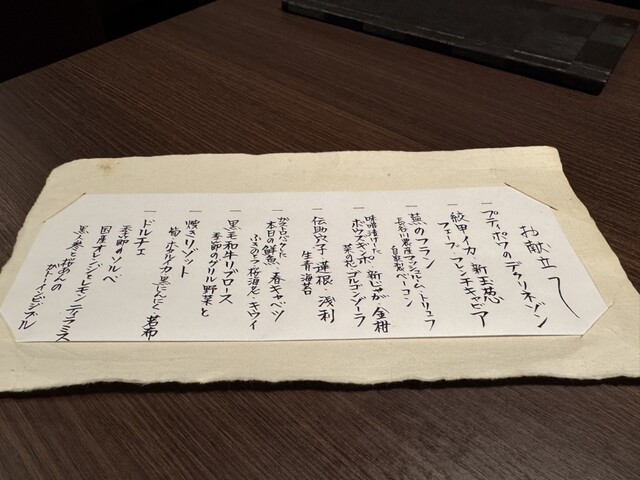 お献立
一 プティポワのデクリネゾン
一 紋甲イカ 新玉葱
フェーブ フレンチキャビア
一 蕪のフラン
長谷川農産マッシュルーム・トリュフ
自家製ベーコン
一 味噌漬けした
ホワイトアスパラ 新じゃが・金柑
菜の花 ゴルゴンゾーラ
一 伝助穴子 蓮根・浅利
生青海苔
一 カダイフをまとった
本日の鮮魚・春キャベツ
ふきのとう 桜海老・キウイ
一 黒毛和牛リブロース
季節のグリル野菜と
一 焼きリゾット
筍 ホタルイカ 黒にんにく 若布
一 ドルチェ
季節のソルベ
国産オレンジとレモン ティラミス
黒人参と桜あんの
ガトーインビジブル